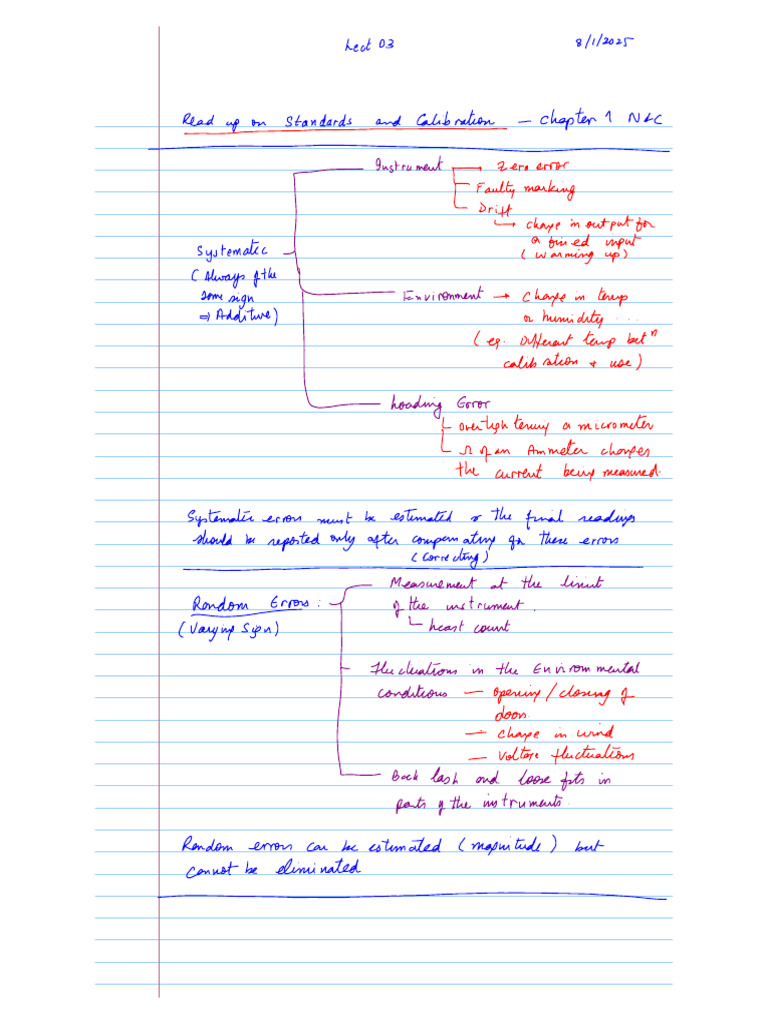 Lect 03
8/1/2025
Read up on Standards and Calibration — chapter 1 N&C
Instrument → Zero error
Faulty marking
Drift
↳ change in output for
a fixed input
(warming up)
Systematic
(Always of the
same sign
⇒ Additive)
Environment → Change in temp
or humidity ...
(eg. Different temp betⁿ
calibration & use)
Loading Error
Overtightening a micrometer
Ω of an Ammeter changes
the current being measured.
Systematic errors must be estimated & the final readings
should be reported only after compensating for these errors
(Correcting)
Random Errors:
(Varying Sign)
Measurement at the limit
of the instrument.
Least count
Fluctuations in the Environmental
conditions — opening/closing of
door.
— Change in wind
— Voltage fluctuations
Back lash and loose fits in
parts of the instruments.
Random errors can be estimated (magnitude) but
cannot be eliminated